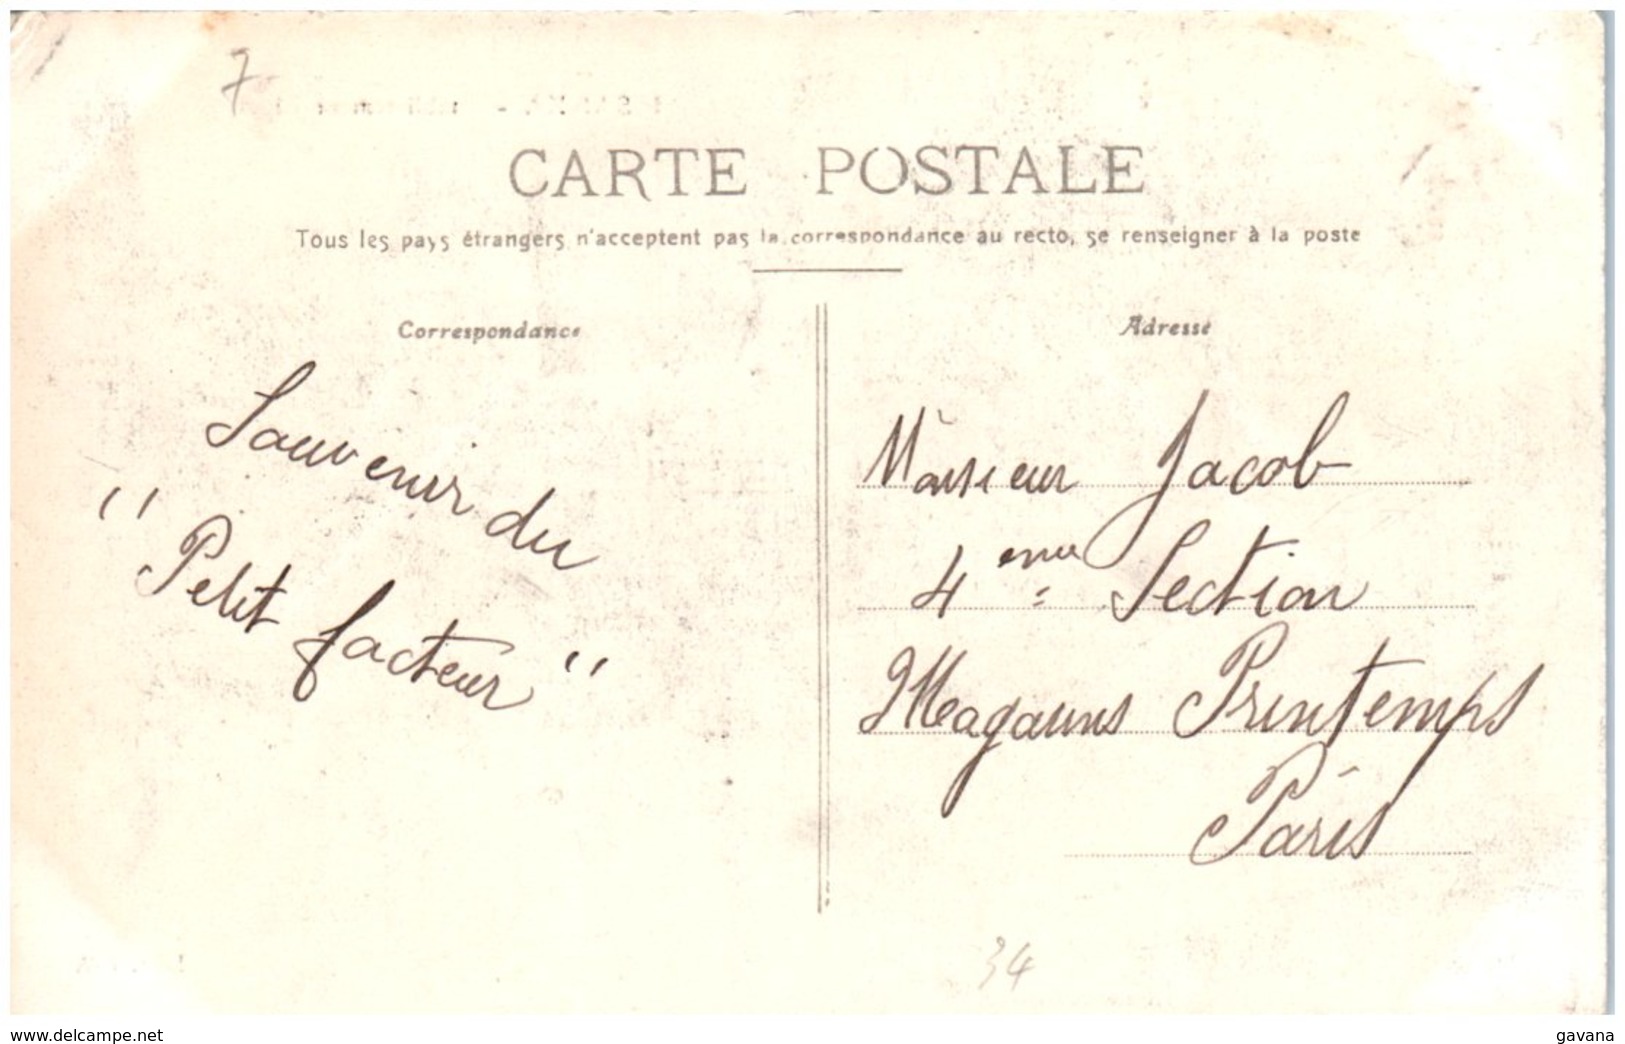 7
CARTE POSTALE
Tous les pays étrangers n'acceptent pas la correspondance au recto, se renseigner à la poste
Correspondance
Souvenir du
"Petit facteur"
Adresse
Monsieur Jacob
4eme Section
Magasins Printemps
Paris
34
www.delcampe.net
gavana